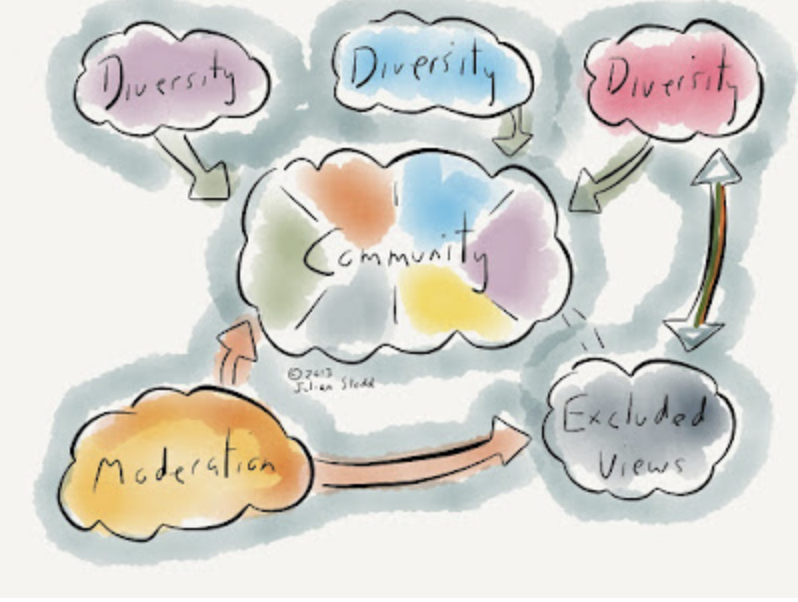 Diversity
Diversity
Diversity
Community
©2013
Julian Stodd
Moderation
Excluded
Views